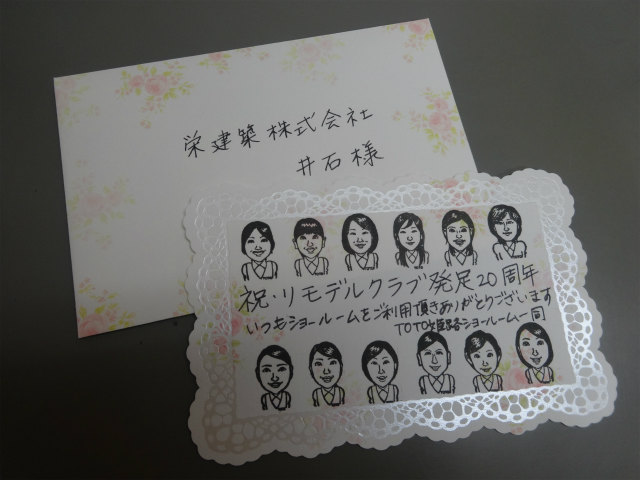 栄建築株式会社
井石様
祝・リモデルクラブ発足20周年
いつもショールームをご利用頂きありがとうございます
TOTO姫路ショールーム一同